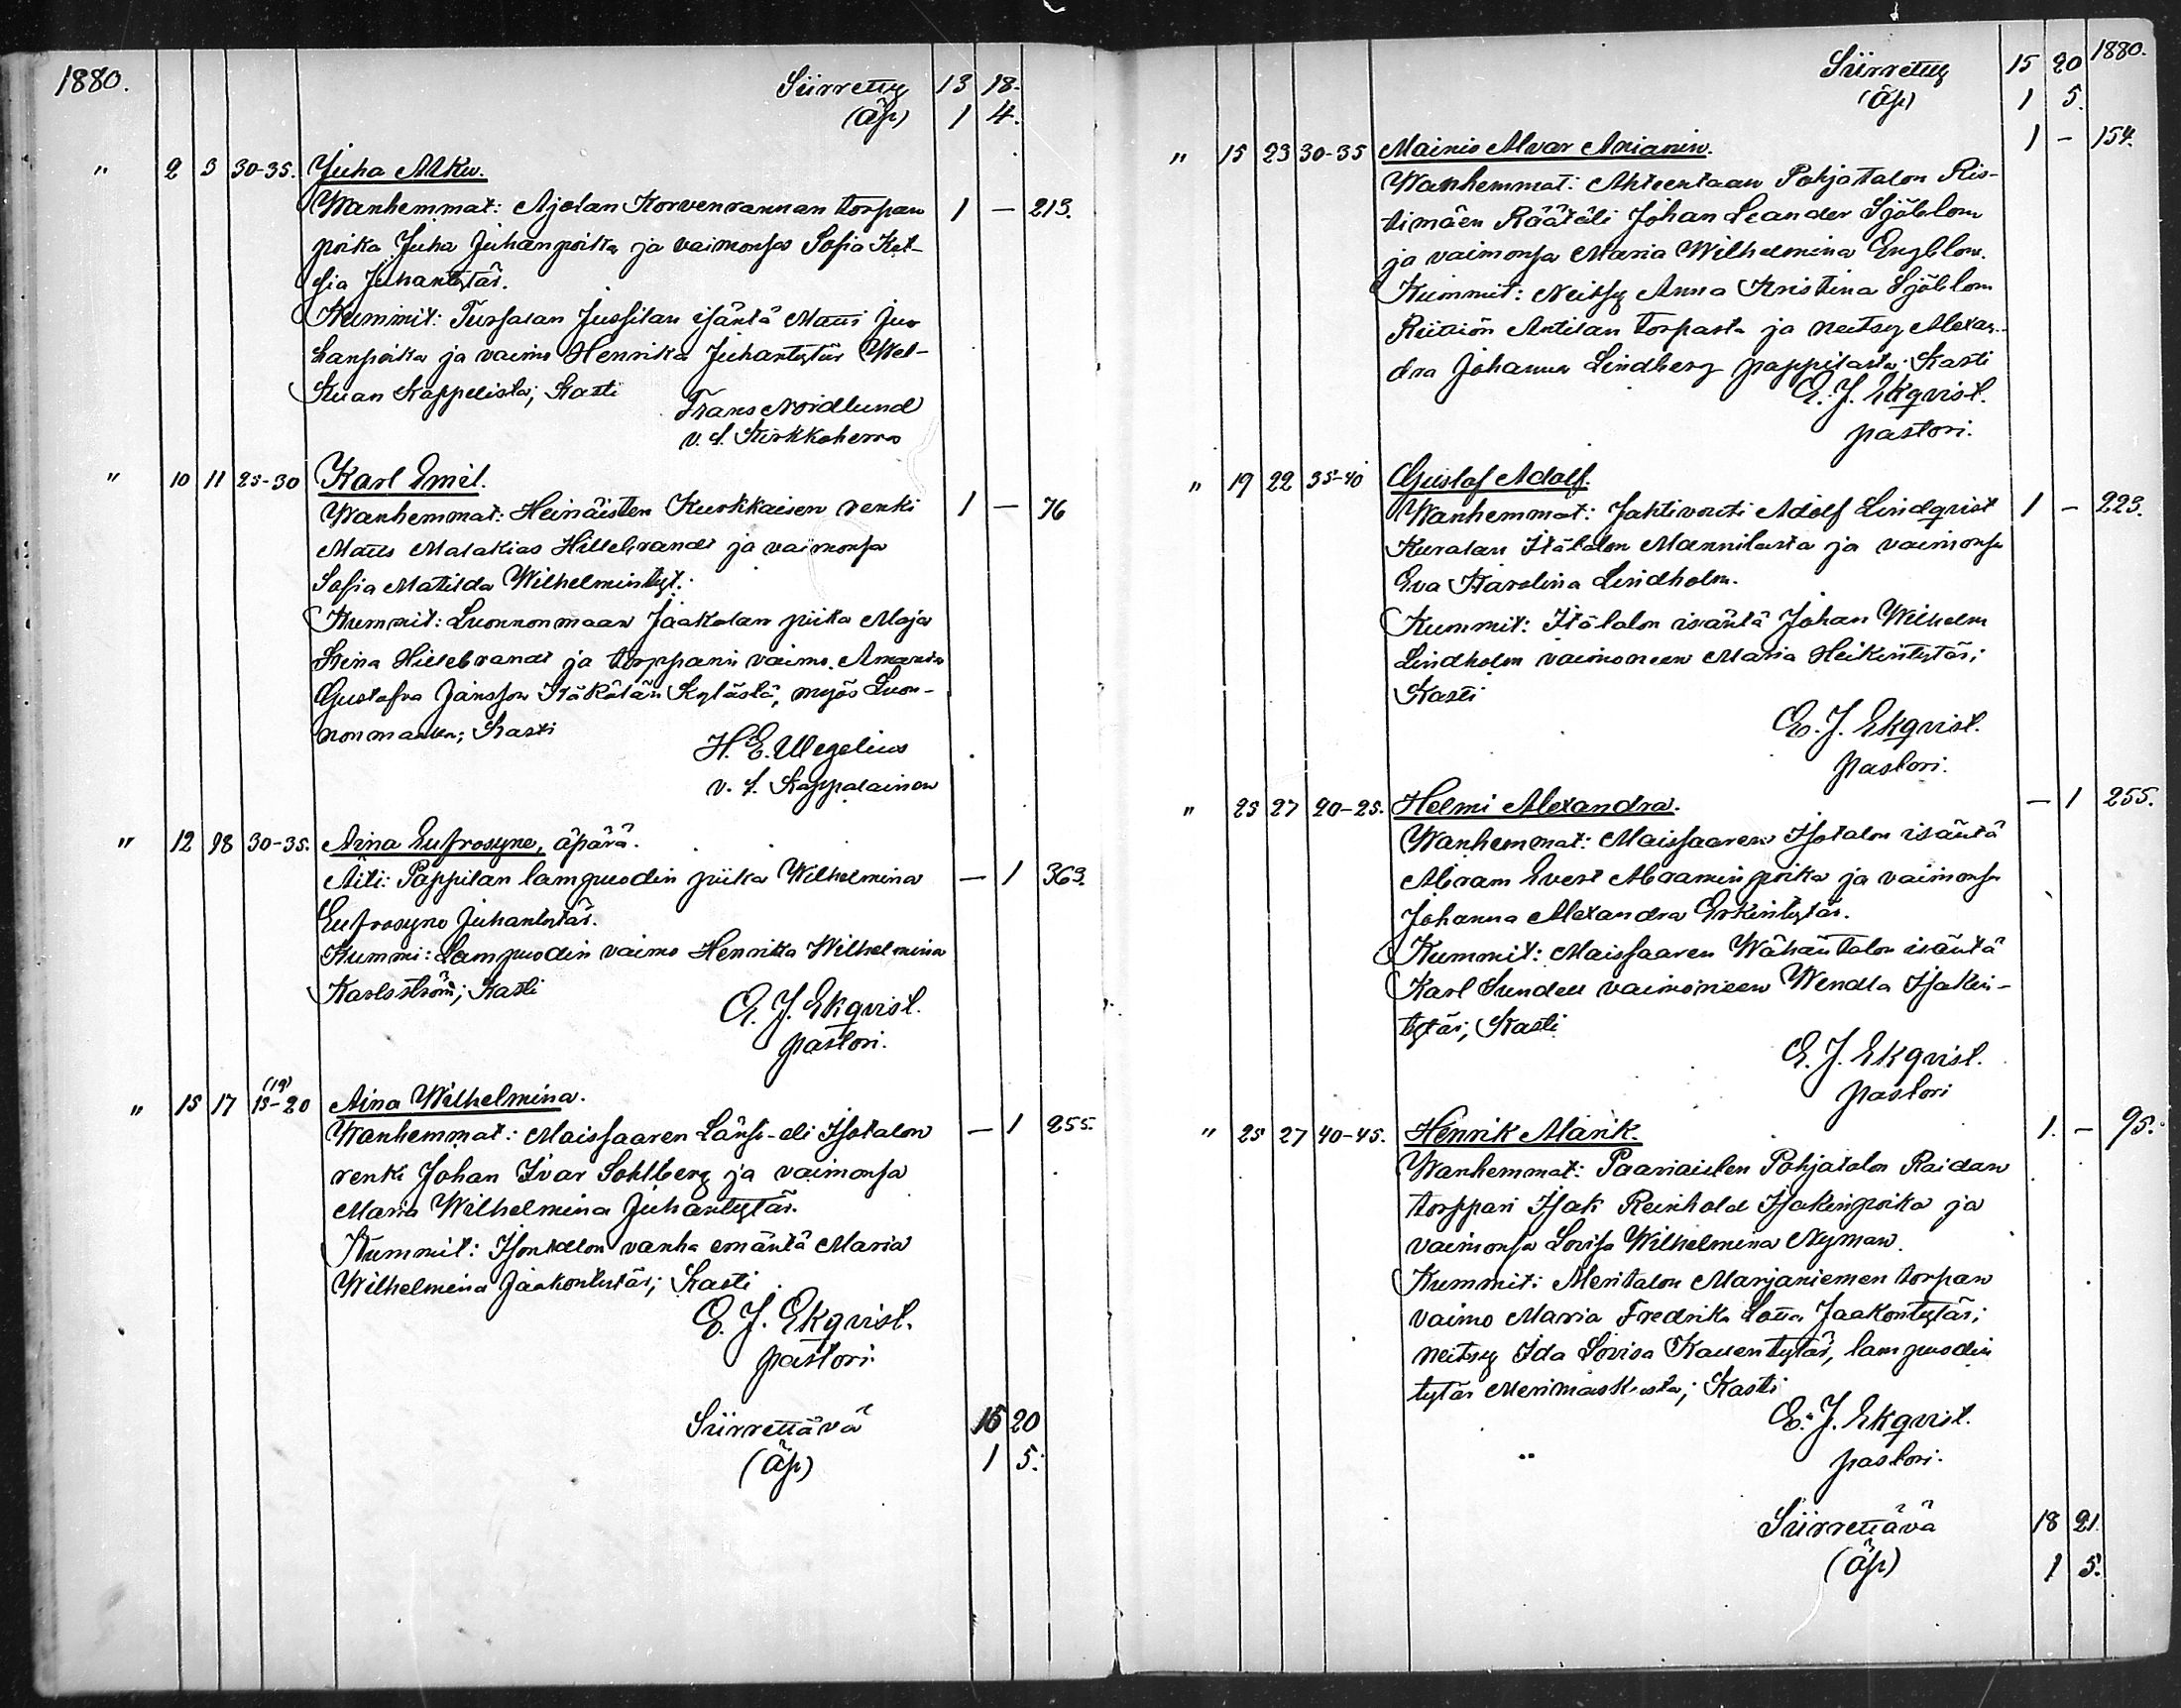 1880.
Siirretty 13 18.
(Äp) 1 4.
" 2 3 30-35. Juha
Wanhemmat: Ajolan Korvenrannan torpan 1 — 213.
poika Juha Juhanpoika ja vaimonsa Sofia Ket-
sia Juhantytär.
Kummit: Jussilan isäntä Matti Ju-
hanpoika ja vaimo Henrika Juhantytär Wel-
kuan Kappelista; Kasti
Frans Nordlund
v. t. Kirkkoherra
" 10 11 25-30 Karl Emil.
Wanhemmat: Heinäisten Kurkkaisen renki 1 — 76
Matts Malakias Hillebrandt ja vaimonsa
Sofia Matilda Wilhelmintyt.:
Kummit: Luonnonmaan Jaakolan piika Maja
Stina Hillebrandt ja torpparin vaimo Amanda
Gustafva Jansson Käkölän Kylästä, myös Luon-
nonmaalta; Kasti
H. E. Wegelius
v. t. Kappalainen
" 12 18 30-35. Aina Eufrosyne, äpärä.
Äiti: Pappilan lampuodin piika Wilhelmina — 1 363.
Eufrosyne Juhantytär.
Kummi: Lampuodin vaimo Henrika Wilhelmina
Karlsström; Kasti
E. J. Ekqvist.
pastori.
(19)
" 15 17 15-20 Aina Wilhelmina.
Wanhemmat: Maissaaren Länsi- eli Isotalon — 1 255.
renki Johan Ivar Sohlberg ja vaimonsa
Maria Wilhelmina Juhantytär.
Kummit: Isontalon vanha emäntä Maria
Wilhelmina Jaakontytär; Kasti
E. J. Ekqvist.
pastori.
Siirrettävä 15 20
(Äp) 1 5.
1880.
Siirretty 15 20
(Äp) 1 5.
" 15 23 30-35 Mainio Alvar Anianin. 1 — 154.
Wanhemmat: Ahteentaan Pohjatalon Ris-
timäen Räätäli Johan Leander Sjöblom
ja vaimonsa Maria Wilhelmina Engblom.
Kummit: Neitsy Anna Kristina Sjöblom
Antilan torpasta ja neitsy Alexan-
dra Johanna Lindberg pappilasta; Kasti
E. J. Ekqvist.
pastori.
" 19 22 35-40 Gustaf Adolf.
Wanhemmat: Jahtivouti Adolf Lindqvist 1 — 223.
Kuralan Itätalon Mannilasta ja vaimonsa
Eva Karolina Lindholm.
Kummit: Itätalon isäntä Johan Wilhelm
Lindholm vaimoneen Maria Heikintytär;
Kasti
E. J. Ekqvist.
pastori.
" 25 27 20-25. Helmi Alexandra. — 1 255.
Wanhemmat: Maissaaren Isotalon isäntä
Abram Evert Abraminpoika ja vaimonsa
Johanna Alexandra Erkintytär.
Kummit: Maissaaren Wähäntalon isäntä
Karl Sundell vaimoneen Wendla Isakin-
tytär; Kasti
E. J. Ekqvist.
pastori
" 25 27 40-45. Henrik Alarik. 1. — 95.
Wanhemmat: Paaraisten Pohjatalon Raidan
torppari Isak Reinhold Isakinpoika ja
vaimonsa Lovisa Wilhelmina Nyman.
Kummit: Meritalon Marjaniemen torpan
vaimo Maria Fredrika Lotta Jaakontytär;
neitsy Ida Lovisa Kallentytär, lampuodin
tytär Merimaskusta; Kasti
E. J. Ekqvist.
pastori.
Siirrettävä 18 21.
(Äp) 1 5.